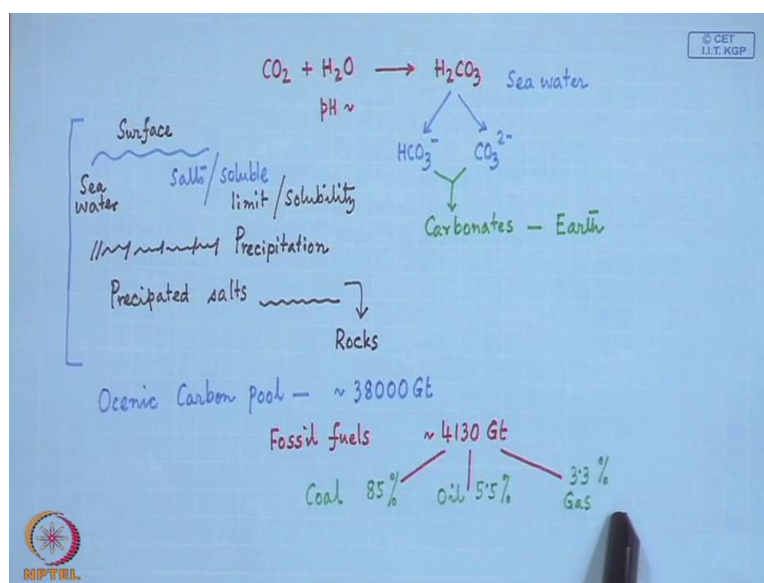 © CET
I.I.T. KGP
CO₂ + H₂O → H₂CO₃ Sea water
pH ~
HCO₃⁻ CO₃²⁻
Carbonates – Earth
Surface
Sea water
salts/soluble
limit/solubility
Precipitation
Precipated salts
Rocks
Ocenic Carbon pool – ~ 38000 Gt
Fossil fuels ~ 4130 Gt
Coal 85% Oil 5.5% 3.3% Gas
NPTEL